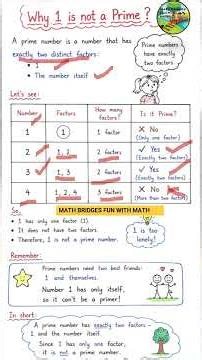 Why 1 is not a Prime?
A prime number is a number that has
exactly two distinct factors:
• 1
• The number itself
Prime numbers
have exactly
two factors
Let's see:
Number Factors How many factors? Is it Prime?
1 1 1 factor ✗ No (Only one factor)
2 1, 2 2 factors ✓ Yes (Exactly two factors)
3 1, 3 2 factors ✓ Yes (Exactly two factors)
4 1, 2, 4 3 factors ✗ No (More than two factors)
MATH BRIDGES FUN WITH MATH
So,
• 1 has only one factor (1).
• It does not have two factors.
• Therefore, 1 is not a prime number.
1 is too
lonely!
Remember:
Prime numbers need two best friends:
1 and themselves.
Number 1 has only itself,
so it can't be a prime!
In short:
A prime number has exactly two factors -
1 and the number itself.
Since 1 has only one factor,
it is not a prime number.